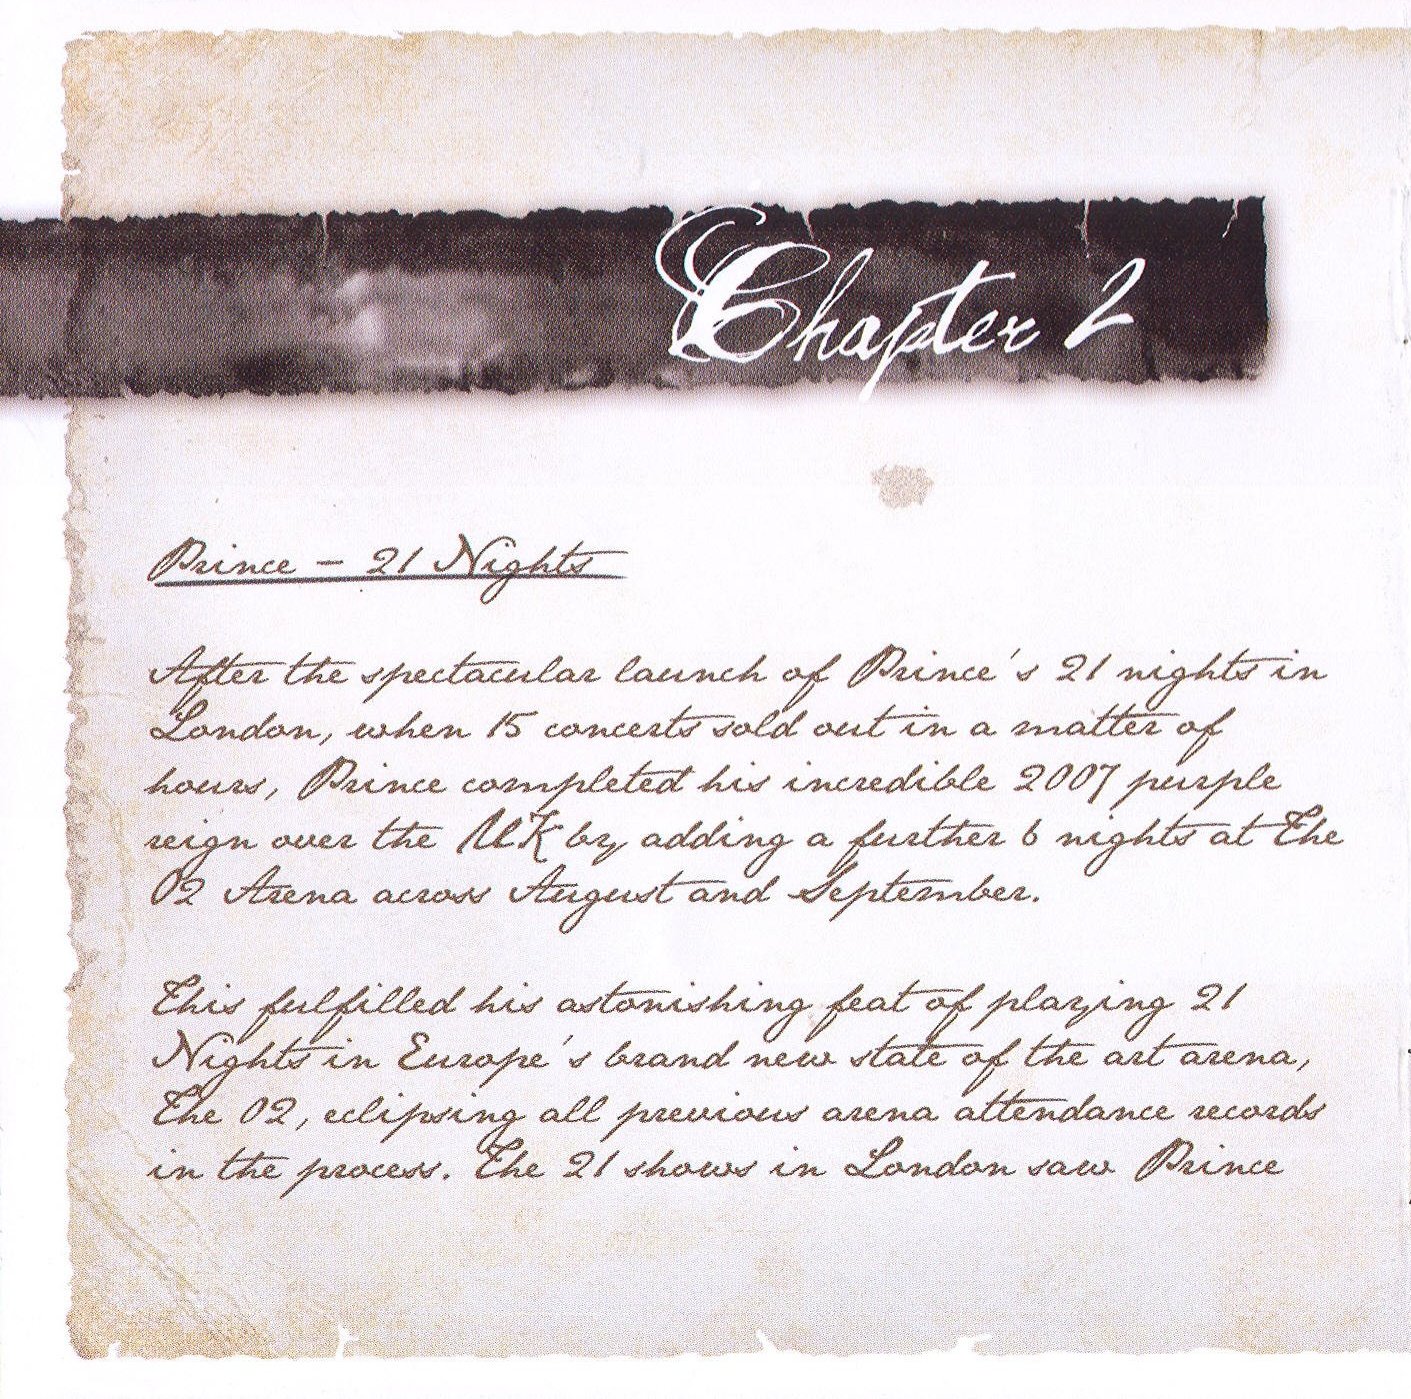 Chapter 2
Prince - 21 Nights
After the spectacular launch of Prince's 21 nights in
London, when 15 concerts sold out in a matter of
hours, Prince completed his incredible 2007 purple
reign over the UK by adding a further 6 nights at The
O2 Arena across August and September.
This fulfilled his astonishing feat of playing 21
Nights in Europe's brand new state of the art arena,
The O2, eclipsing all previous arena attendance records
in the process. The 21 shows in London saw Prince